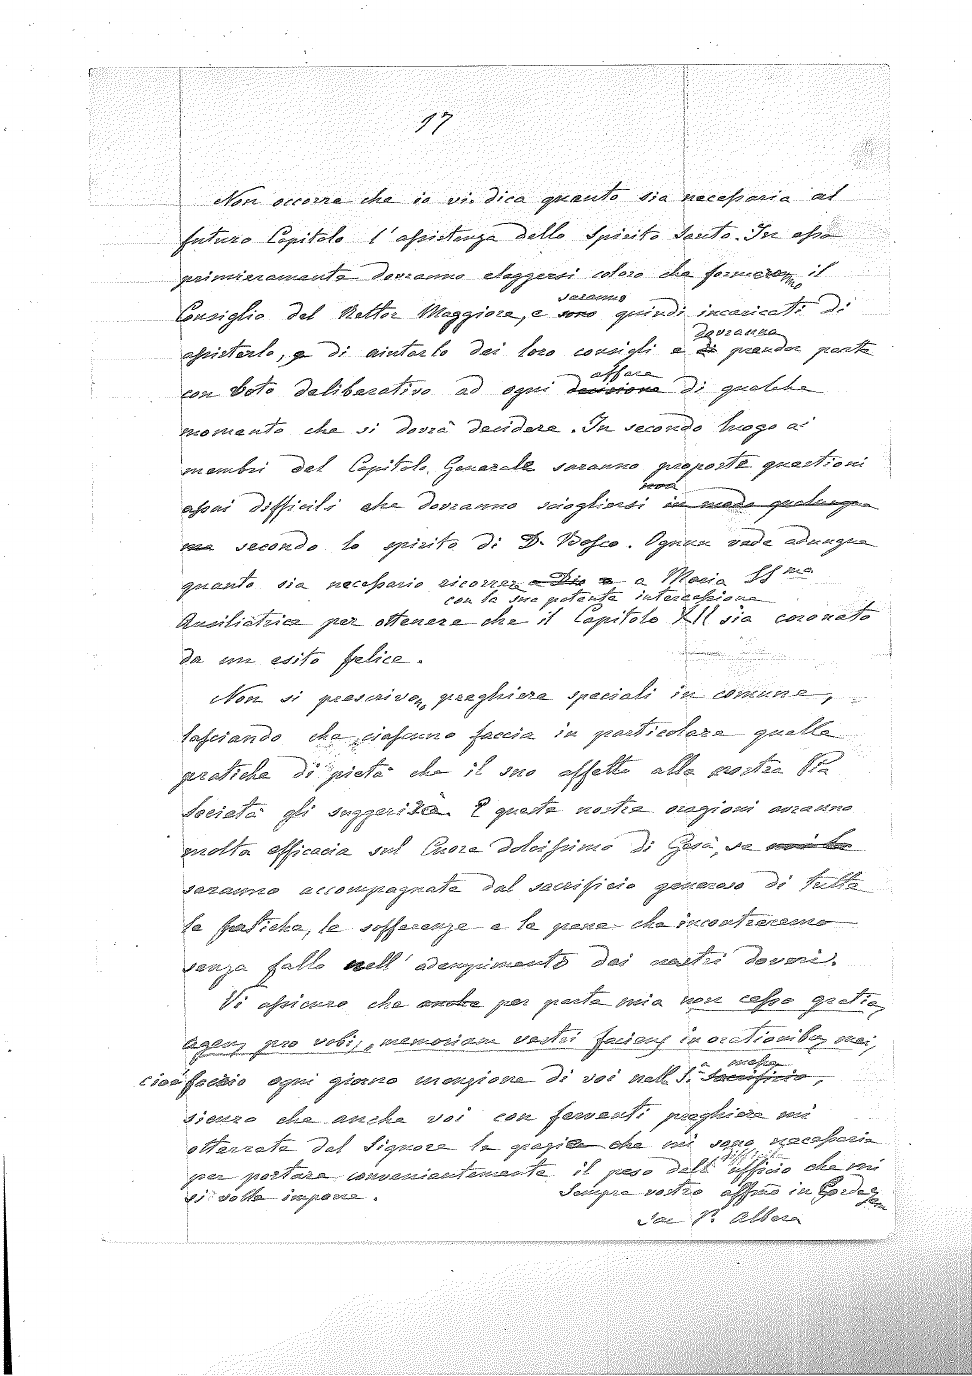 17
Non occorre che io vi dica quanto sia necessaria al
futuro Capitolo l'assistenza dello Spirito Santo. In esso
primieramente dovranno eleggersi coloro che formeranno il
Consiglio del Rettor Maggiore, e sono saranno quindi incaricati di
assisterlo, e di aiutarlo dei loro consigli e di dovranno prender parte
con voto deliberativo ad ogni decisione affare di qualche
momento che si dovrà decidere. In secondo luogo ai
membri del Capitolo Generale saranno proposte questioni
assai difficili che dovranno sciogliersi non in modo qualunque
ma secondo lo spirito di D. Bosco. Ognun vede adunque
quanto sia necessario ricorrere a Dio e a Maria SSma
con la sua potente intercessione
Ausiliatrice per ottenere che il Capitolo XII sia coronato
da un esito felice.
Non si prescrivono preghiere speciali in comune,
lasciando che ciascuno faccia in particolare quelle
pratiche di pietà che il suo affetto alla nostra Pia
Società gli suggerirà. E queste nostre orazioni avranno
molta efficacia sul Cuore dolcissimo di Gesù, se
saranno accompagnate dal sacrificio generoso di tutte
le fatiche, le sofferenze e le pene che incontreremo
senza fallo nell'adempimento dei nostri doveri.
Vi assicuro che anche per parte mia non cesso gratias
agens pro vobis, memoriam vestri faciens in orationibus meis,
cioè faccio ogni giorno menzione di voi nella S.a messa sacrificio,
sicuro che anche voi con ferventi preghiere mi
otterrete dal Signore le grazie che mi sono necessarie
per portare convenientemente il peso dell'difficile ufficio che mi
si volle imporre. Sempre vostro affmo in Corde Jesu
Sac P. Albera